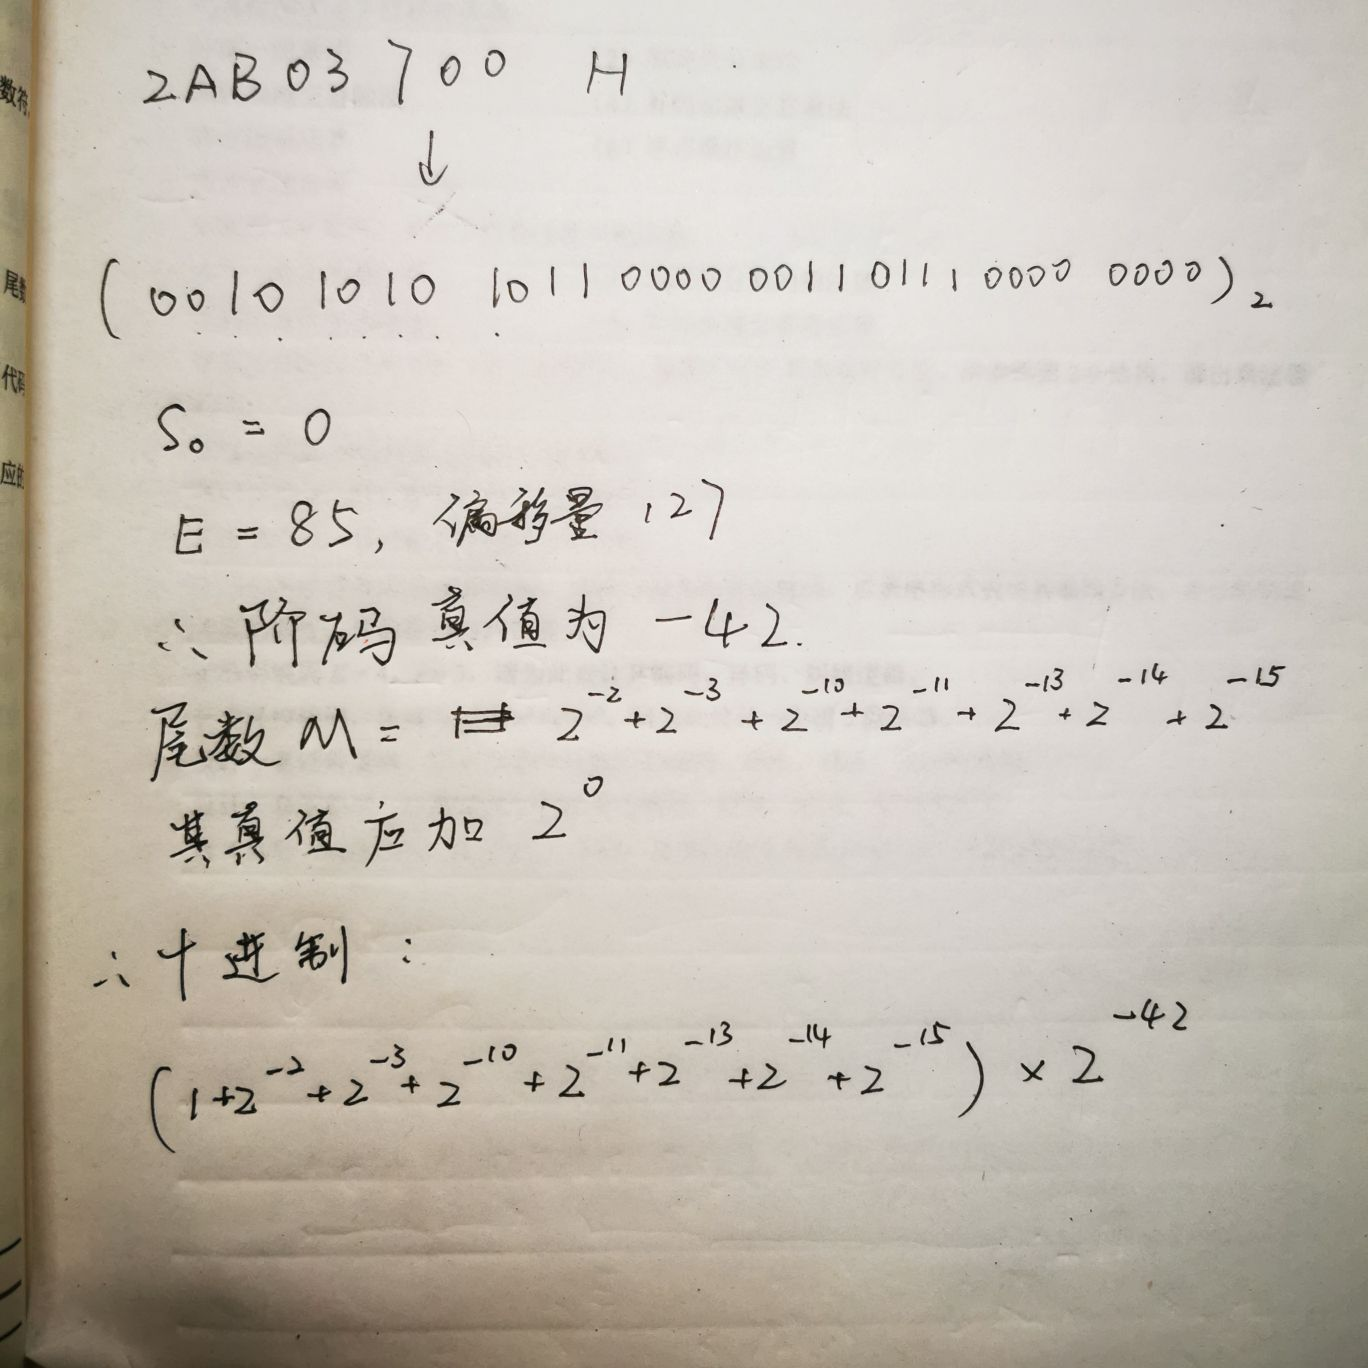 2AB03700 H
↓
(0010 1010 1011 0000 0011 0111 0000 0000)₂
S₀ = 0
E = 85, 偏移量 127
∴ 阶码真值为 -42.
尾数 M = 2⁻²+2⁻³+2⁻¹⁰+2⁻¹¹+2⁻¹³+2⁻¹⁴+2⁻¹⁵
其真值应加 2⁰
∴ 十进制:
(1+2⁻²+2⁻³+2⁻¹⁰+2⁻¹¹+2⁻¹³+2⁻¹⁴+2⁻¹⁵) × 2⁻⁴²
数符
尾数
代码
应的